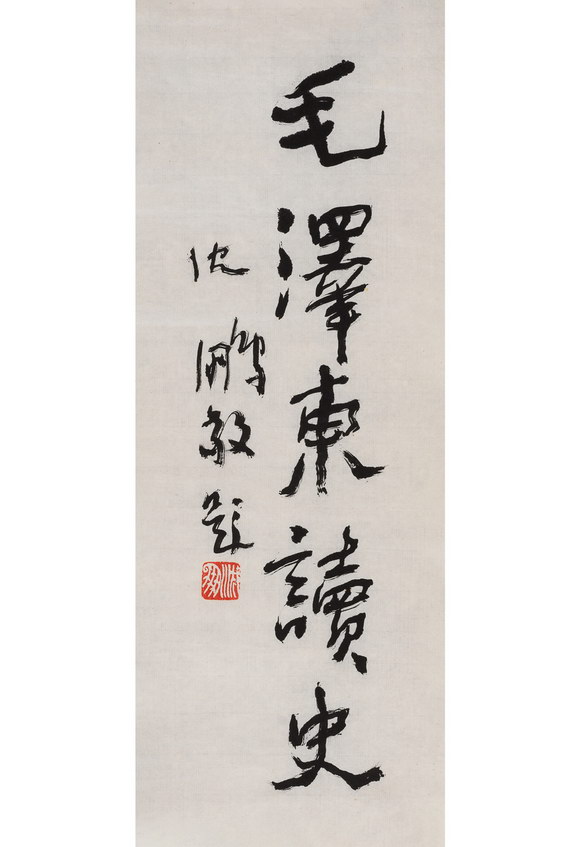 毛澤東讀史
沈鵬敬題